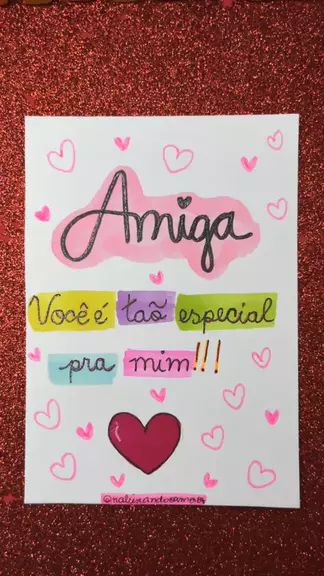 Amiga
Você é taõ especial
pra mim!!!